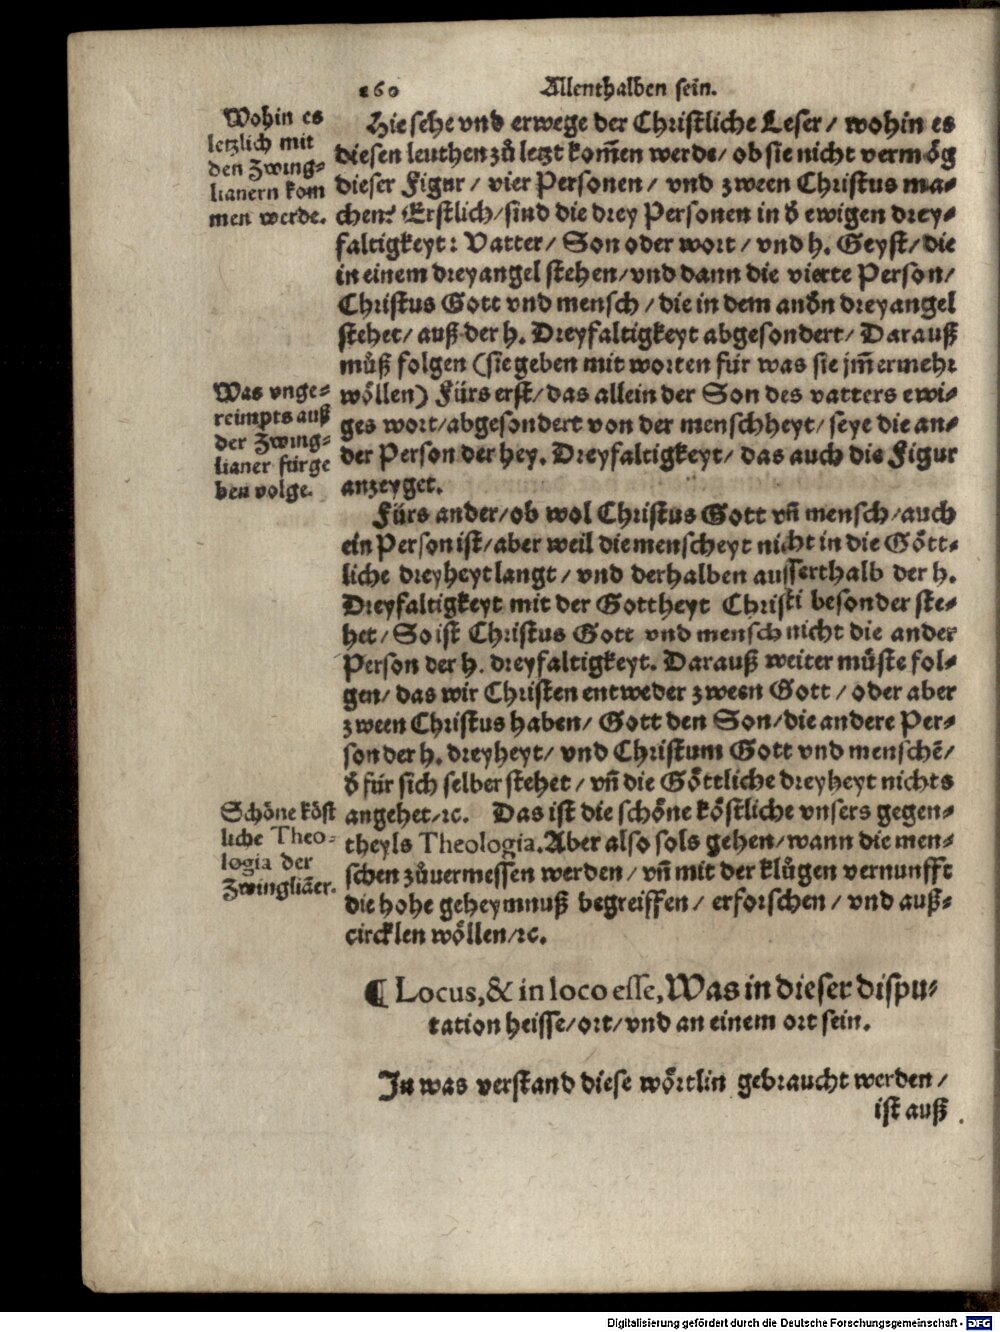 160 Allenthalben sein.
Wohin es
letzlich mit
den Zwing-
lianern kom
men werde.
Hie sehe vnd erwege der Christliche Leser / wohin es
diesen leuthen zů letzt kom̃en werde / ob sie nicht vermög
dieser Figur / vier Personen / vnd zween Christus ma-
chen? Erstlich / sind die drey Personen in d̕ ewigen drey-
faltigkeyt: Vatter / Son oder wort / vnd h. Geyst / die
in einem dreyangel stehen / vnd dann die vierte Person /
Christus Gott vnd mensch / die in dem and̕n dreyangel
stehet / auß der h. Dreyfaltigkeyt abgesondert / Darauß
můß folgen (sie geben mit worten für was sie jm̃ermehr
wöllen) Fürs erst / das allein der Son des vatters ewi-
ges wort / abgesondert von der menschheyt / seye die an-
der Person der hey. Dreyfaltigkeyt / das auch die Figur
anzeyget.
Was vnge-
reimpts auß
der Zwing-
lianer fürge
ben volge.
Fürs ander / ob wol Christus Gott vñ mensch / auch
ein Person ist / aber weil die menscheyt nicht in die Gött-
liche dreyheyt langt / vnd derhalben ausserthalb der h.
Dreyfaltigkeyt mit der Gottheyt Christi besonder ste-
het / So ist Christus Gott vnd mensch nicht die ander
Person der h. dreyfaltigkeyt. Darauß weiter müste fol-
gen / das wir Christen entweder zween Gott / oder aber
zween Christus haben / Gott den Son / die andere Per-
son der h. dreyheyt / vnd Christum Gott vnd menschẽ /
d̕ für sich selber stehet / vñ die Göttliche dreyheyt nichts
angehet / ꝛc. Das ist die schöne köstliche vnsers gegen-
theyls Theologia. Aber also sols gehen / wann die men-
schen zůuermessen werden / vñ mit der klůgen vernunfft
die hohe geheymnuß begreiffen / erforschen / vnd auß-
circklen wöllen / ꝛc.
Schöne köst
liche Theo-
logia der
Zwingliãer.
¶ Locus, & in loco esse, Was in dieser dispu-
tation heisse / ort / vnd an einem ort sein.
In was verstand diese wörtlin gebraucht werden /
ist auß
Digitalisierung gefördert durch die Deutsche Forschungsgemeinschaft - DFG